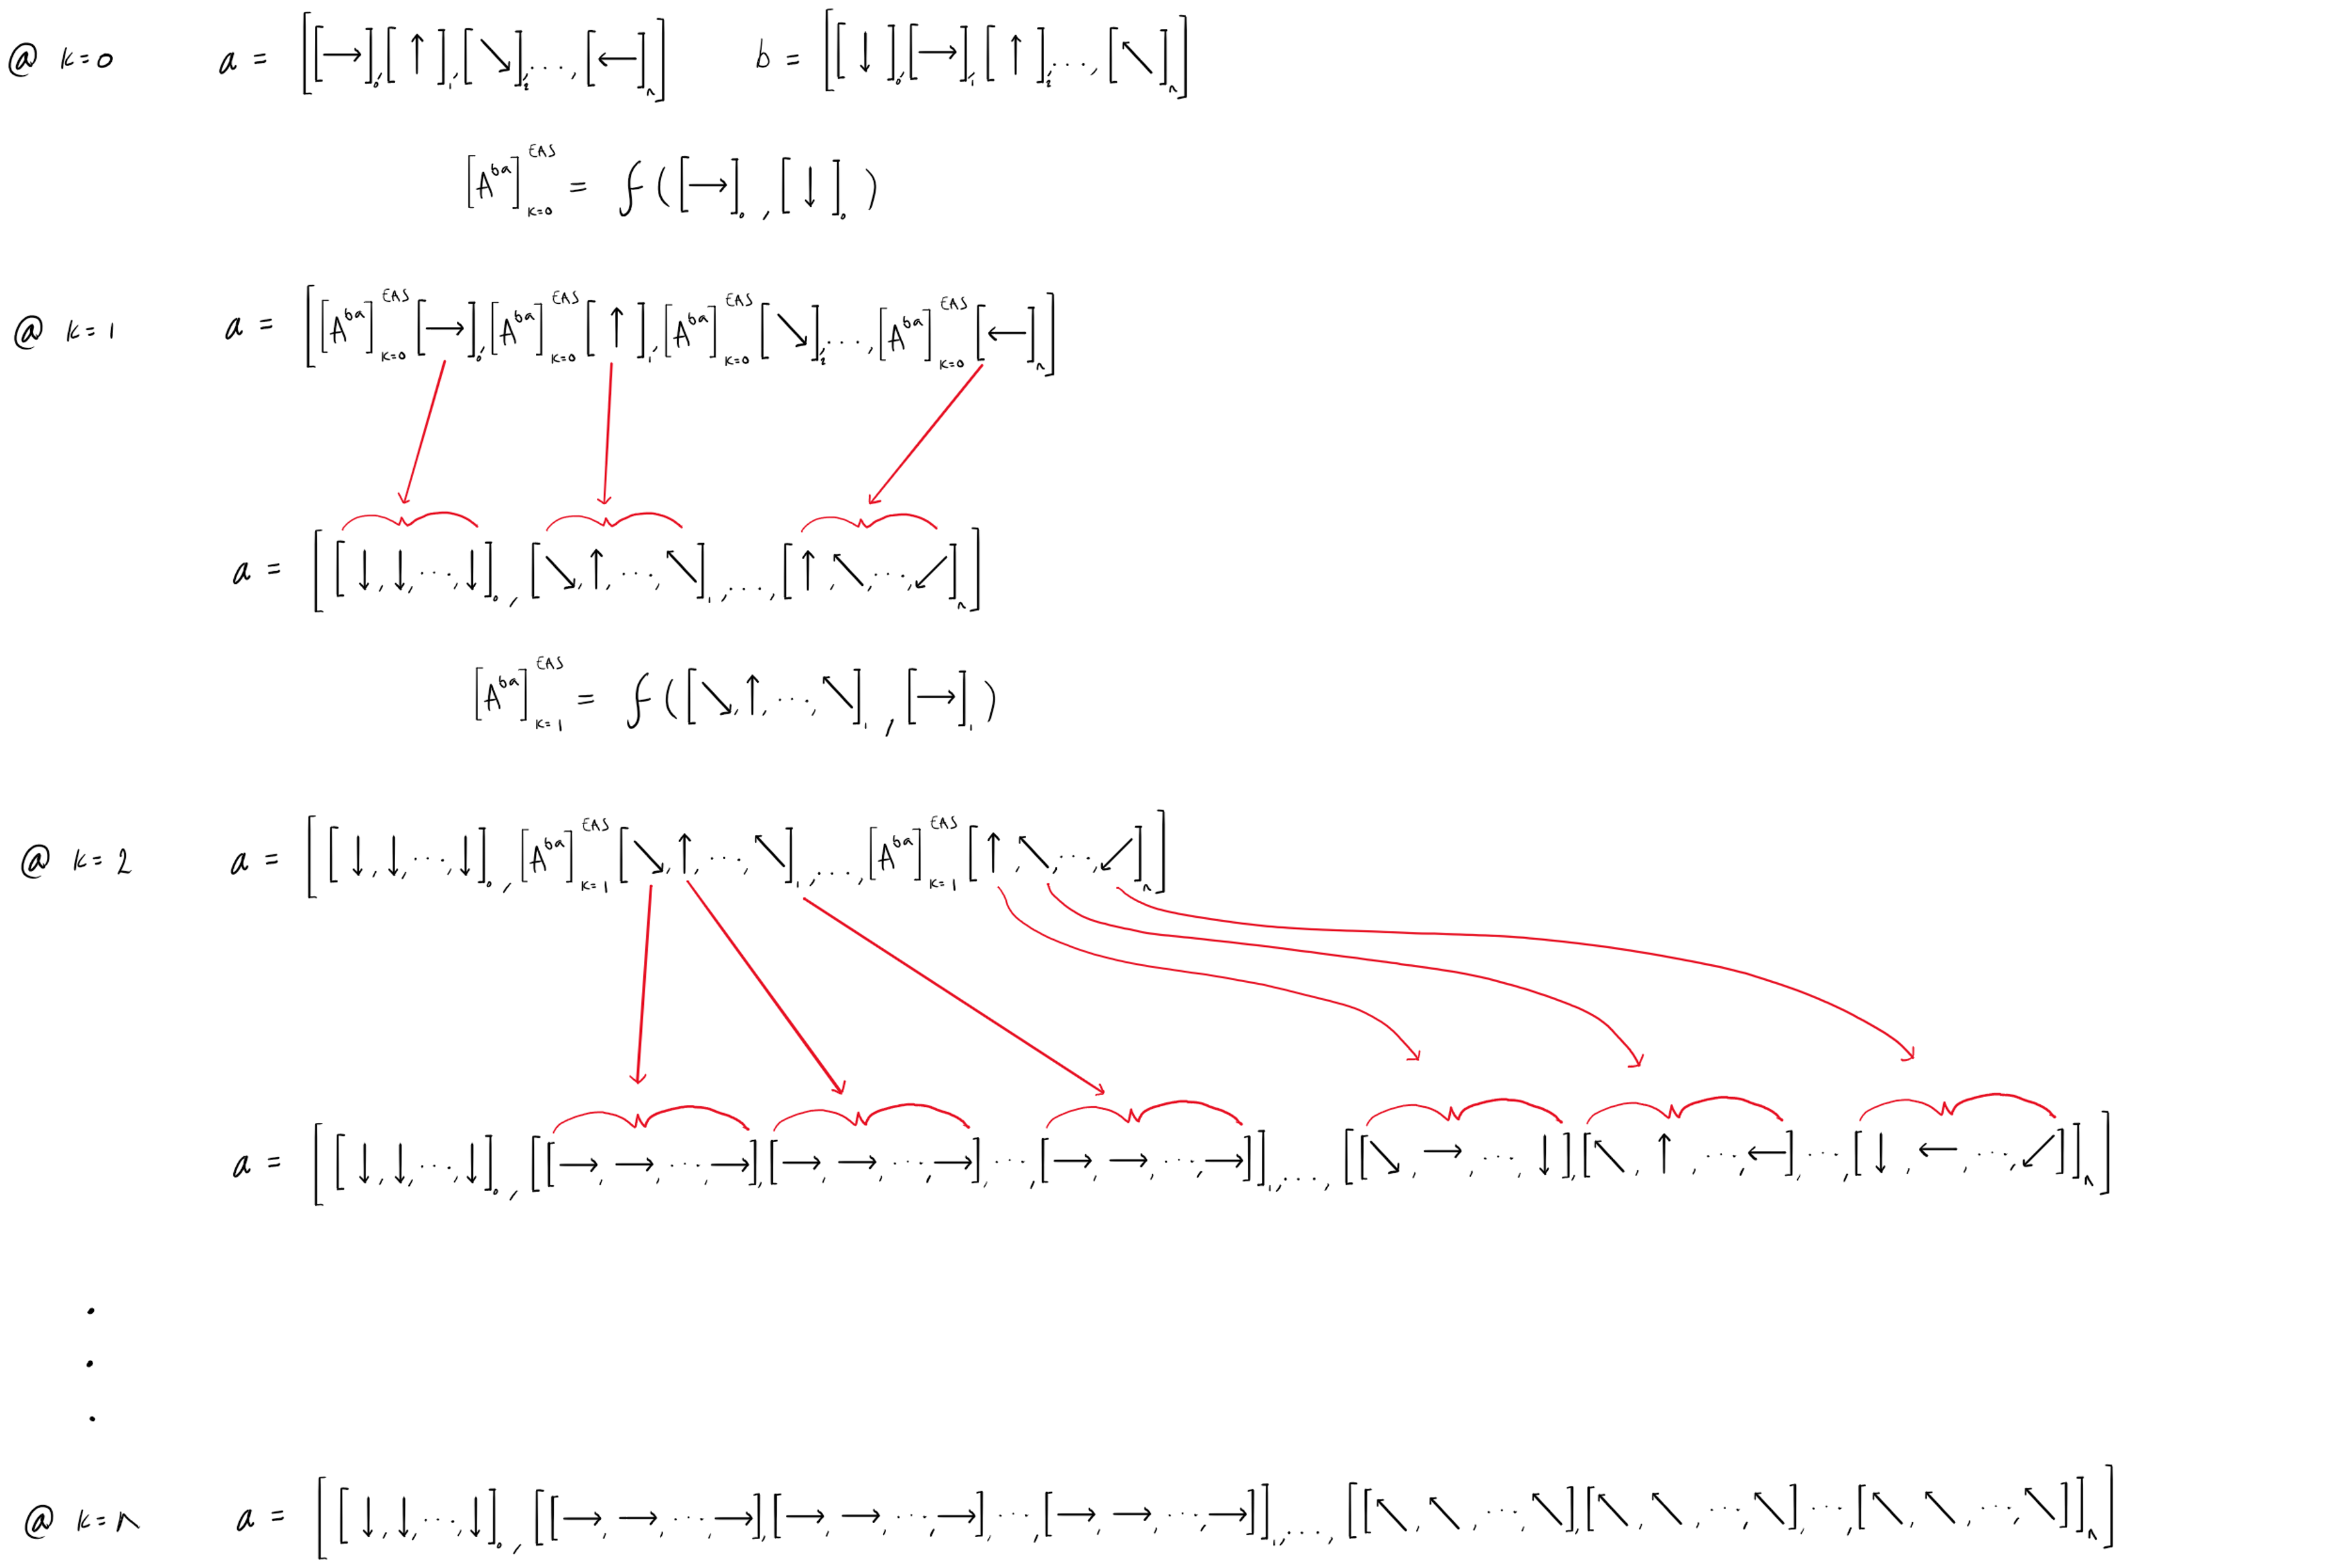 @ k=0 a = [[→]₀,[↑]₁,[↘]₂,...,[←]ₙ] b = [[↓]₀,[→]₁,[↑]₂,...,[↖]ₙ]
[A^{ba}]^{EAS}_{k=0} = f([→]₀,[↓]₀)
@ k=1 a = [[A^{ba}]^{EAS}_{k=0}[→]₀,[A^{ba}]^{EAS}_{k=0}[↑]₁,[A^{ba}]^{EAS}_{k=0}[↘]₂,...,[A^{ba}]^{EAS}_{k=0}[←]ₙ]
a = [[↓,↓,...,↓]₀,[↘,↑,...,↖]₁,...,[↑,↖,...,↙]ₙ]
[A^{ba}]^{EAS}_{k=1} = f([↘,↑,...,↖]₁,[→]₁)
@ k=2 a = [[↓,↓,...,↓]₀,[A^{ba}]^{EAS}_{k=1}[↘,↑,...,↖]₁,...,[A^{ba}]^{EAS}_{k=1}[↑,↖,...,↙]ₙ]
a = [[↓,↓,...,↓]₀,[[→,→,...,→],[→,→,...,→],...,[→,→,...,→]]₁,...,[[↘,→,...,↓],[↖,↑,...,←],...,[↓,←,...,↙]]ₙ]
.
.
.
@ k=n a = [[↓,↓,...,↓]₀,[[→,→,...,→],[→,→,...,→],...,[→,→,...,→]]₁,...,[[↖,↖,...,↖],[↖,↖,...,↖],...,[↖,↖,...,↖]]ₙ]